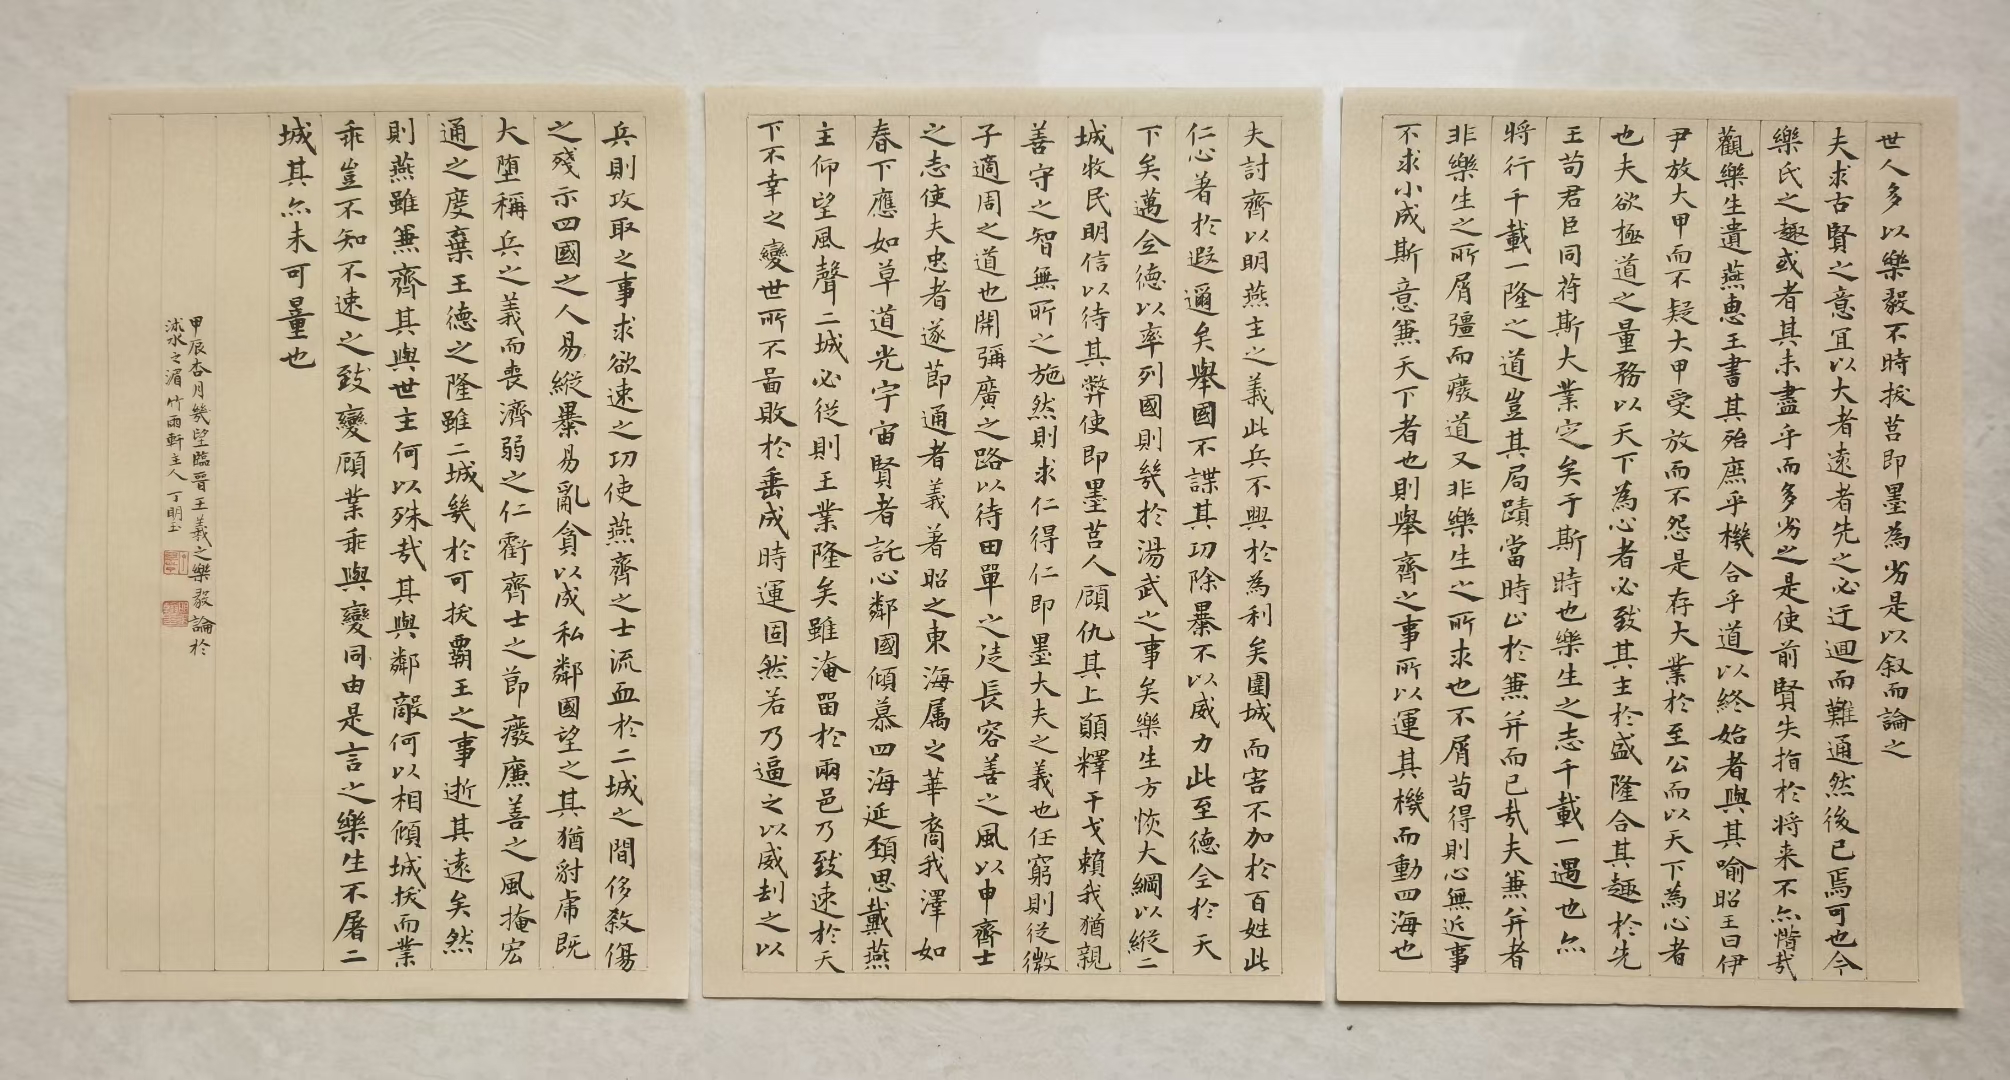 世人多以樂毅不時拔莒即墨為劣是以叙而論之
夫求古賢之意宜以大者遠者先之必迂迴而難通然後已焉可也今
樂氏之趣或者其未盡乎而多劣之是使前賢失指於将来不亦惜哉
觀樂生遺燕惠王書其殆庶乎機合乎道以終始者與其喻昭王曰伊
尹放大甲而不疑大甲受放而不怨是存大業於至公而以天下為心者
也夫欲極道之量務以天下為心者必致其主於盛隆合其趣於先
王苟君臣同符斯大業定矣于斯時也樂生之志千載一遇也亦
將行千載一隆之道豈其局蹟當時止於兼并而已哉夫兼并者
非樂生之所屑彊而癈道又非樂生之所求也不屑苟得則心無近事
不求小成斯意兼天下者也則舉齊之事所以運其機而動四海也
夫討齊以明燕主之義此兵不興於為利矣圍城而害不加於百姓此
仁心著於遐邇矣舉國不謀其功除暴不以威力此至德全於天
下矣邁全德以率列國則幾於湯武之事矣樂生方恢大綱以縱二
城收民明信以待其弊使即墨莒人顧仇其上願釋干戈賴我猶親
善守之智無所之施然則求仁得仁即墨大夫之義也任窮則從微
子適周之道也開彌廣之路以待田單之徒長容善之風以申齊士
之志使夫忠者遂節通者義著昭之東海属之華裔我澤如
春下應如草道光宇宙賢者託心鄰國傾慕四海延頸思戴燕
主仰望風聲二城必從則王業隆矣雖淹留於兩邑乃致速於天
下不幸之變世所不啚敗於垂成時運固然若乃逼之以威劫之以
兵則攻取之事求欲速之功使燕齊之士流血於二城之間侈殺傷
之殘示四國之人是縱暴易亂貪以成私鄰國望之其猶豺虎既
大墮稱兵之義而喪濟弱之仁虧齊士之節癈廉善之風掩宏
通之度棄王德之隆雖二城幾於可拔霸王之事逝其遠矣然
則燕雖兼齊其與世主何以殊哉其與鄰敵何以相傾城拔而業
乖豈不知不速之致變顧業乖與變同由是言之樂生不屠二
城其亦未可量也
甲辰杏月幾望臨晉王羲之樂毅論於
沭水之湄竹雨軒主人丁明玉